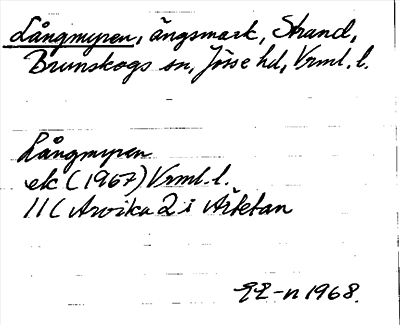 Långmyren, ängsmark, Strand,
Brunskogs sn, Jösse hd, Vrml. l.
Långmyren
ek (1967) Vrml. l.
11C Arvika 2 i
1968.